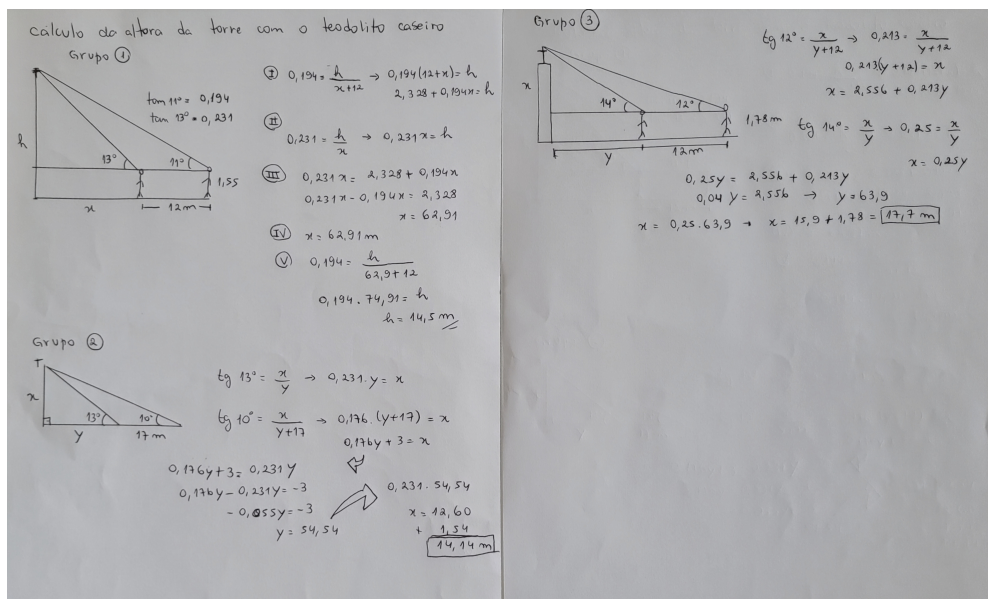 Cálculo da altora da torre com o teodolito caseiro
Grupo ①
tan 11° = 0,194
tan 13° = 0,231
h
13°
11°
1,55
x
12m
Ⓘ 0,194 = h/x+12 → 0,194(12+x) = h
2,328 + 0,194x = h
II
0,231 = h/x → 0,231x = h
III 0,231x = 2,328 + 0,194x
0,231x - 0,194x = 2,328
x = 62,91
IV x = 62,91m
V 0,194 = h/62,9+12
0,194 . 74,91 = h
h = 14,5 m
Grupo ②
T
x
13°
10°
y
17m
tg 13° = x/y → 0,231.y = x
tg 10° = x/y+17 → 0,176.(y+17) = x
0,176y + 3 = x
0,176y + 3 = 0,231y
0,176y - 0,231y = -3
- 0,055y = -3
y = 54,54
0,231 . 54,54
x = 12,60
+ 1,54
14,14 m
Grupo ③
x
14°
12°
1,78m
y
12m
tg 12° = x/y+12 → 0,213 = x/y+12
0,213(y+12) = x
x = 2,556 + 0,213y
tg 14° = x/y → 0,25 = x/y
x = 0,25y
0,25y = 2,556 + 0,213y
0,04 y = 2,556 → y = 63,9
x = 0,25.63,9 → x = 15,9 + 1,78 = 17,7 m